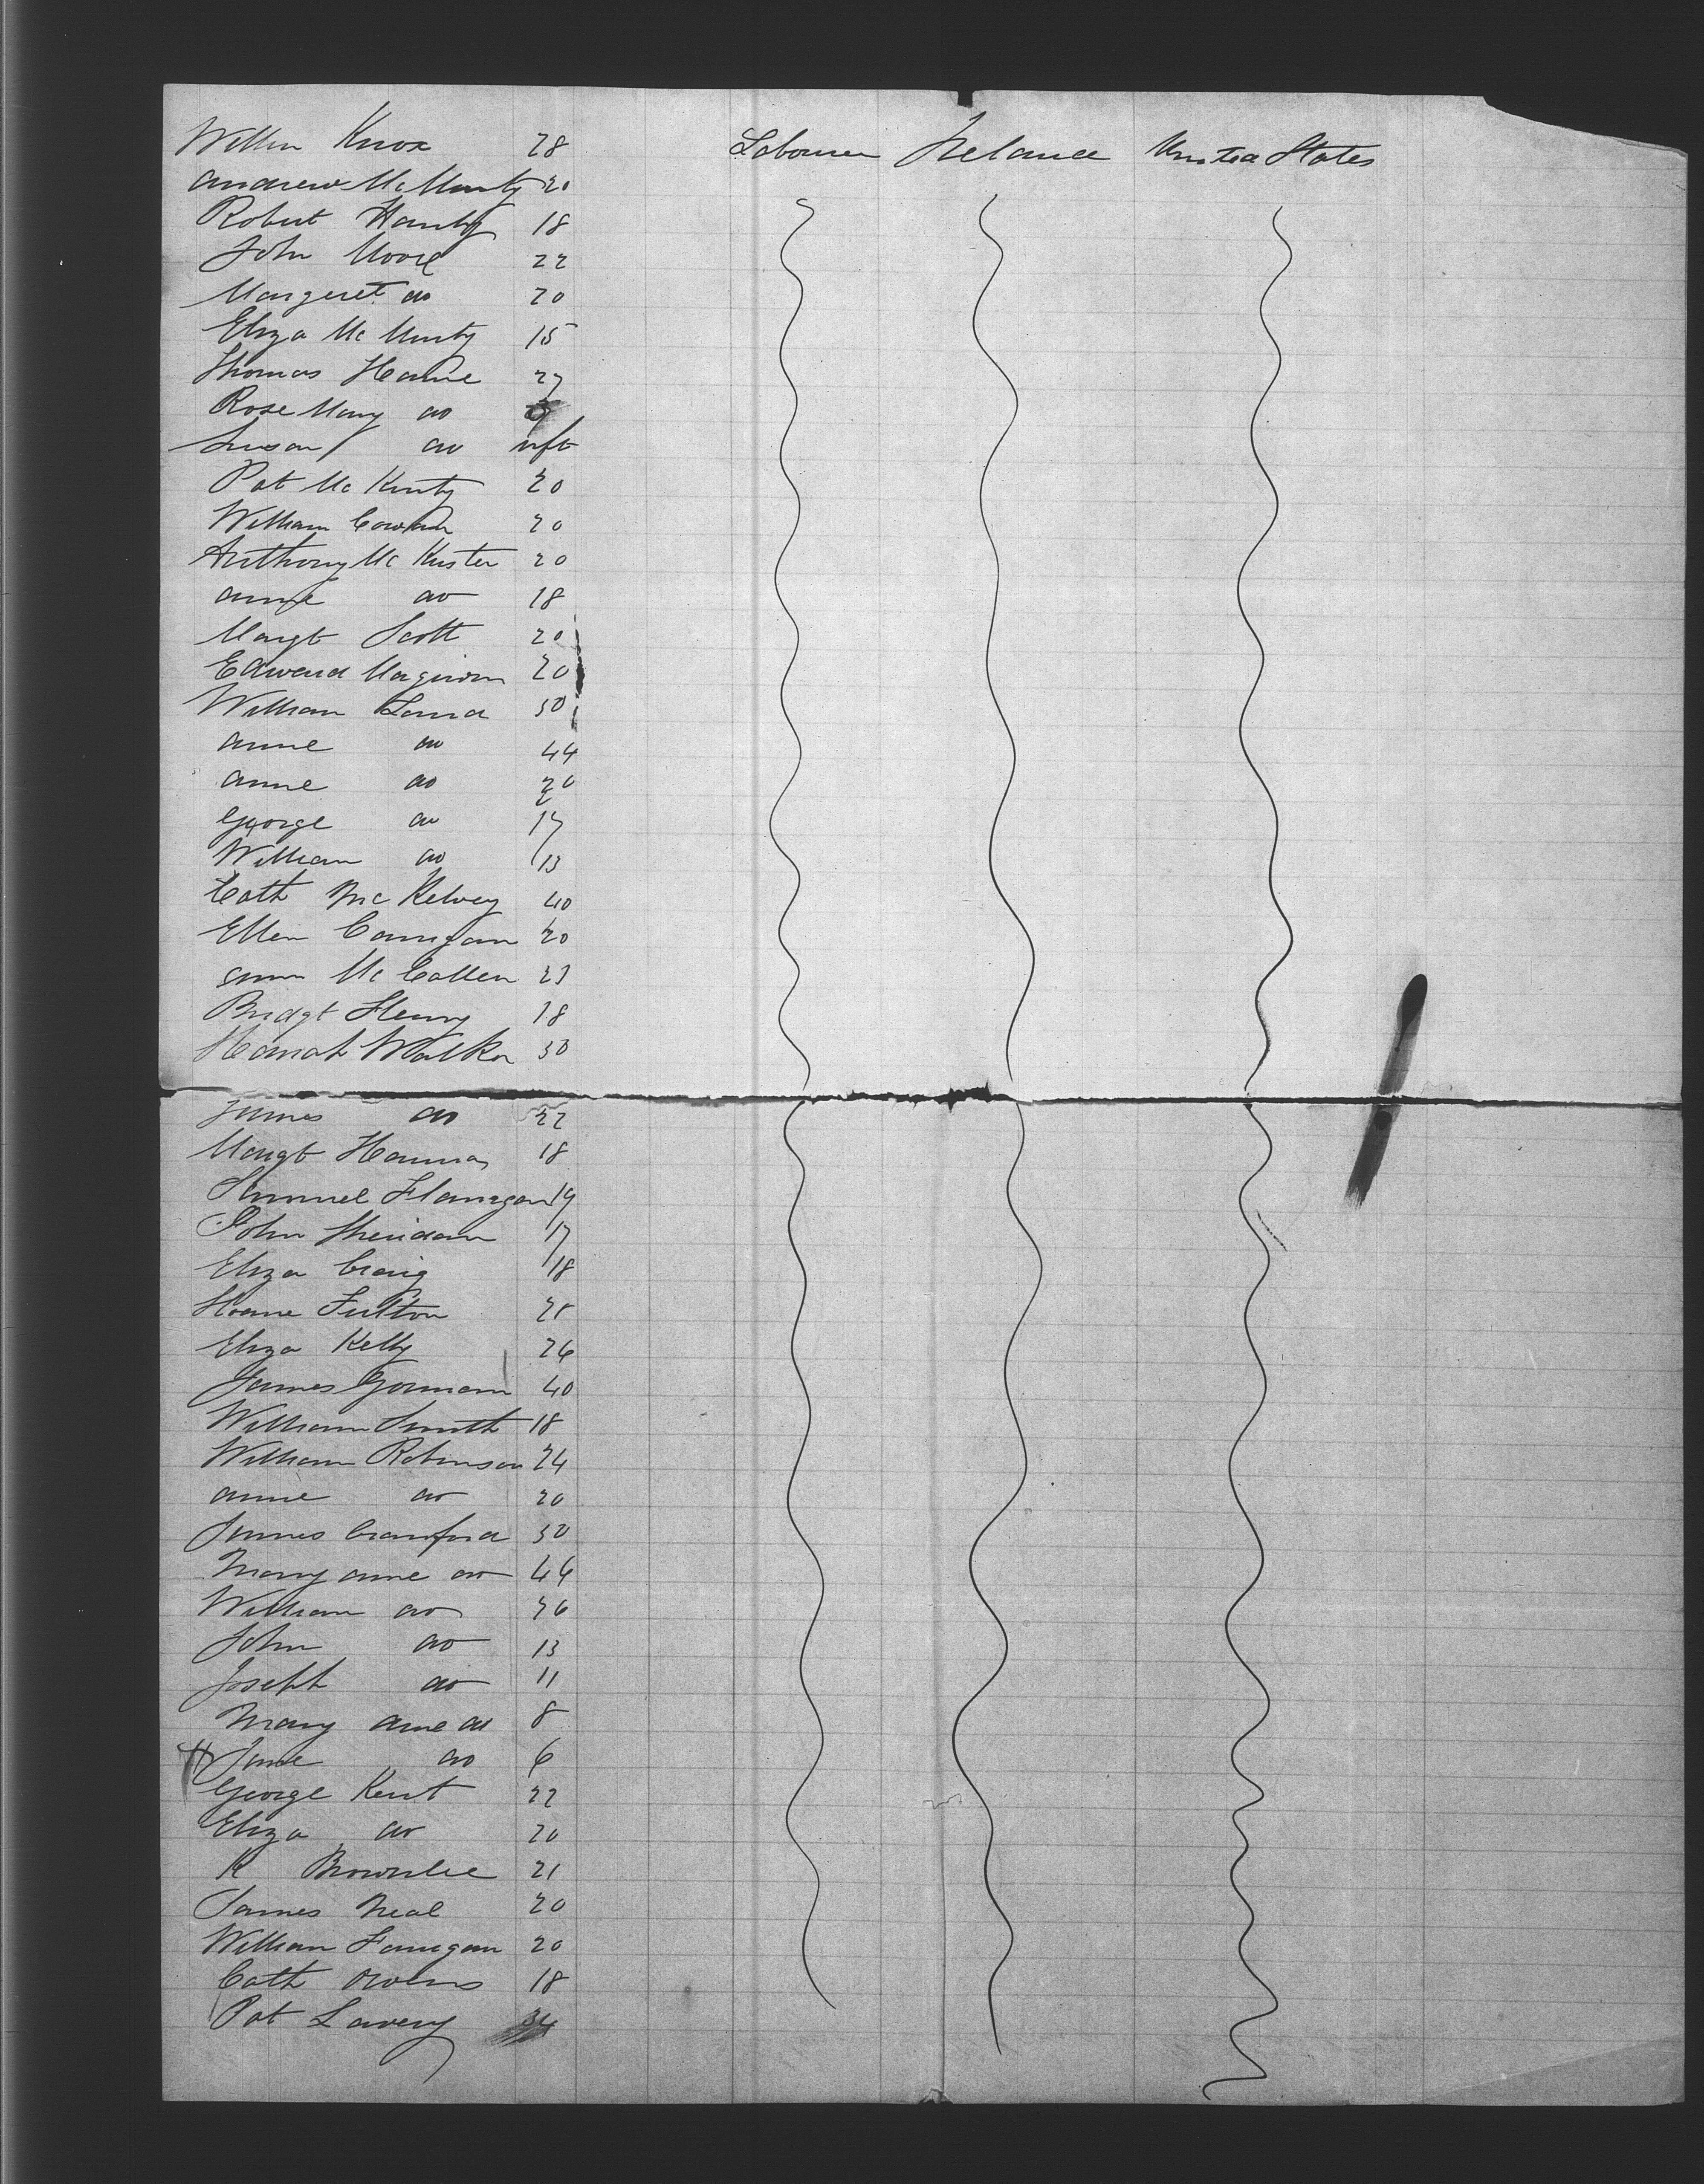 Willm Knox 28 Labourer Ireland United States
Andrew McMurty 20
Robert Hanby 18
John Moore 22
Margeret do 20
Eliza McMurty 15
Thomas 27
Rose Mary do
Susan do inft
Pat McKinty 20
William Cowan 20
Anthony McKuster 20
Anne do 18
Margt Scott 20
Edward 20
William 50
Anne do 44
Anne do 20
George do 17
William do 13
Cath McKelvey 40
Ellen Carrigan 20
McCallen 23
Bridgt Henry 18
Hanah Walker 50
James do 22
Margt Hanna 18
Samuel Flanagan 19
John Sheridan 17
Eliza Craig 18
Fulton 21
Eliza Kelly 26
James Gorman 40
William Smith 18
William Robinson 24
Anne do 20
James Crawford 50
Mary Anne do 44
William do 26
John do 13
Joseph do 11
Mary Anne do 8
Jane do 6
George Kent 22
Eliza do 20
R Brownlee 21
James Neal 20
William Fanigan 20
Cath Owens 18
Pat Lavery 34